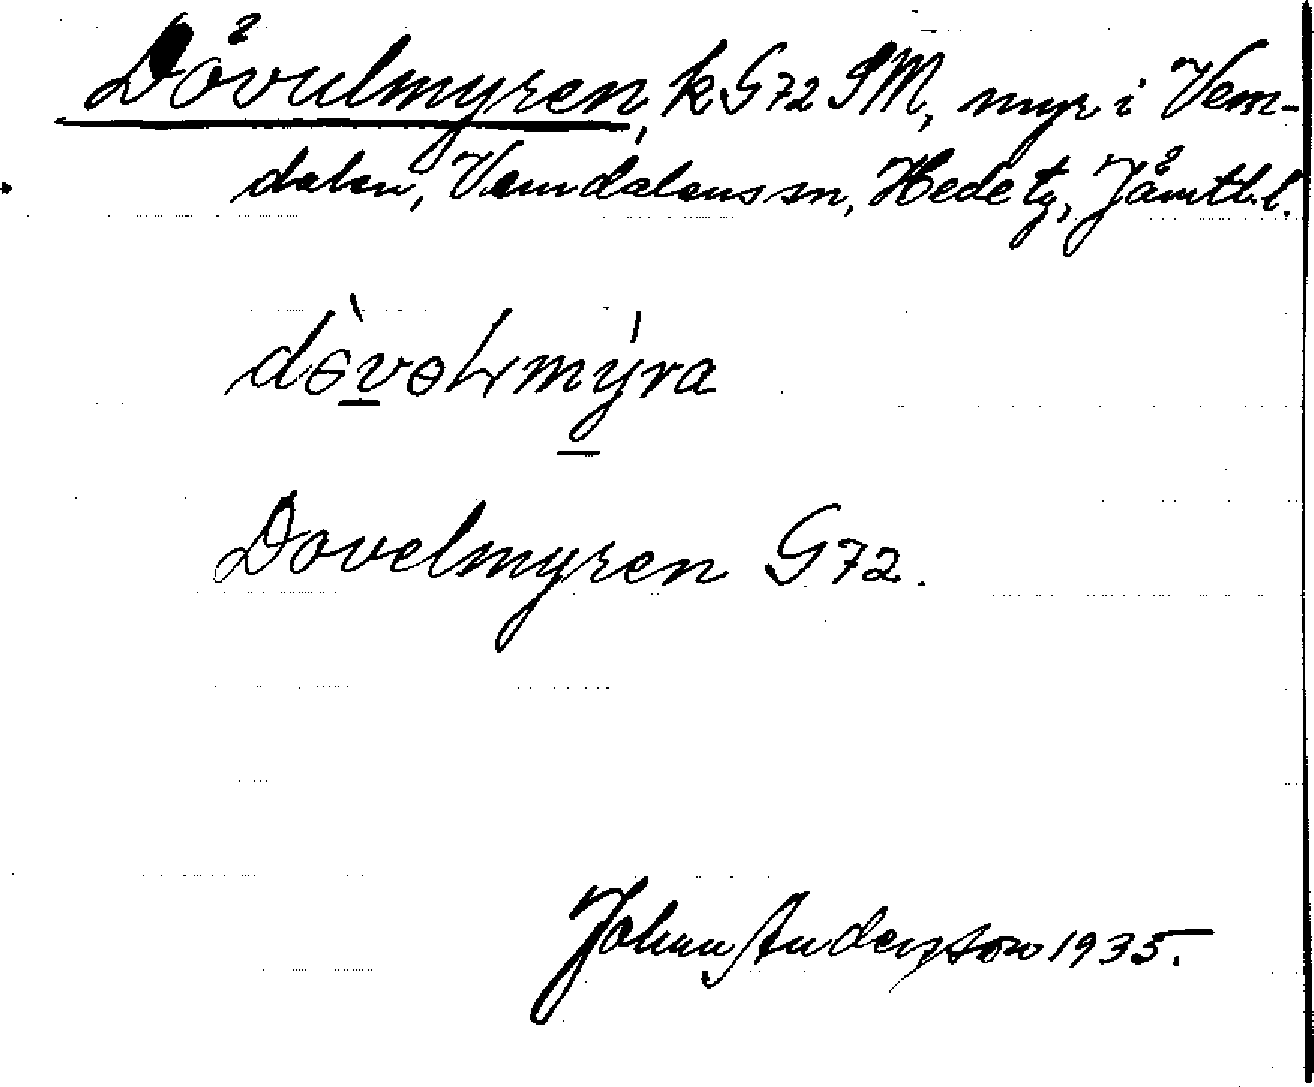 Dövulmyren, k G72 SM, myr i Vem-
dalen, Vemdalens sn, Hede tg, Jämtl. l.
dɵ̀vɵLmýra
Dovelmyren G72.
Johan Andersson 1935.